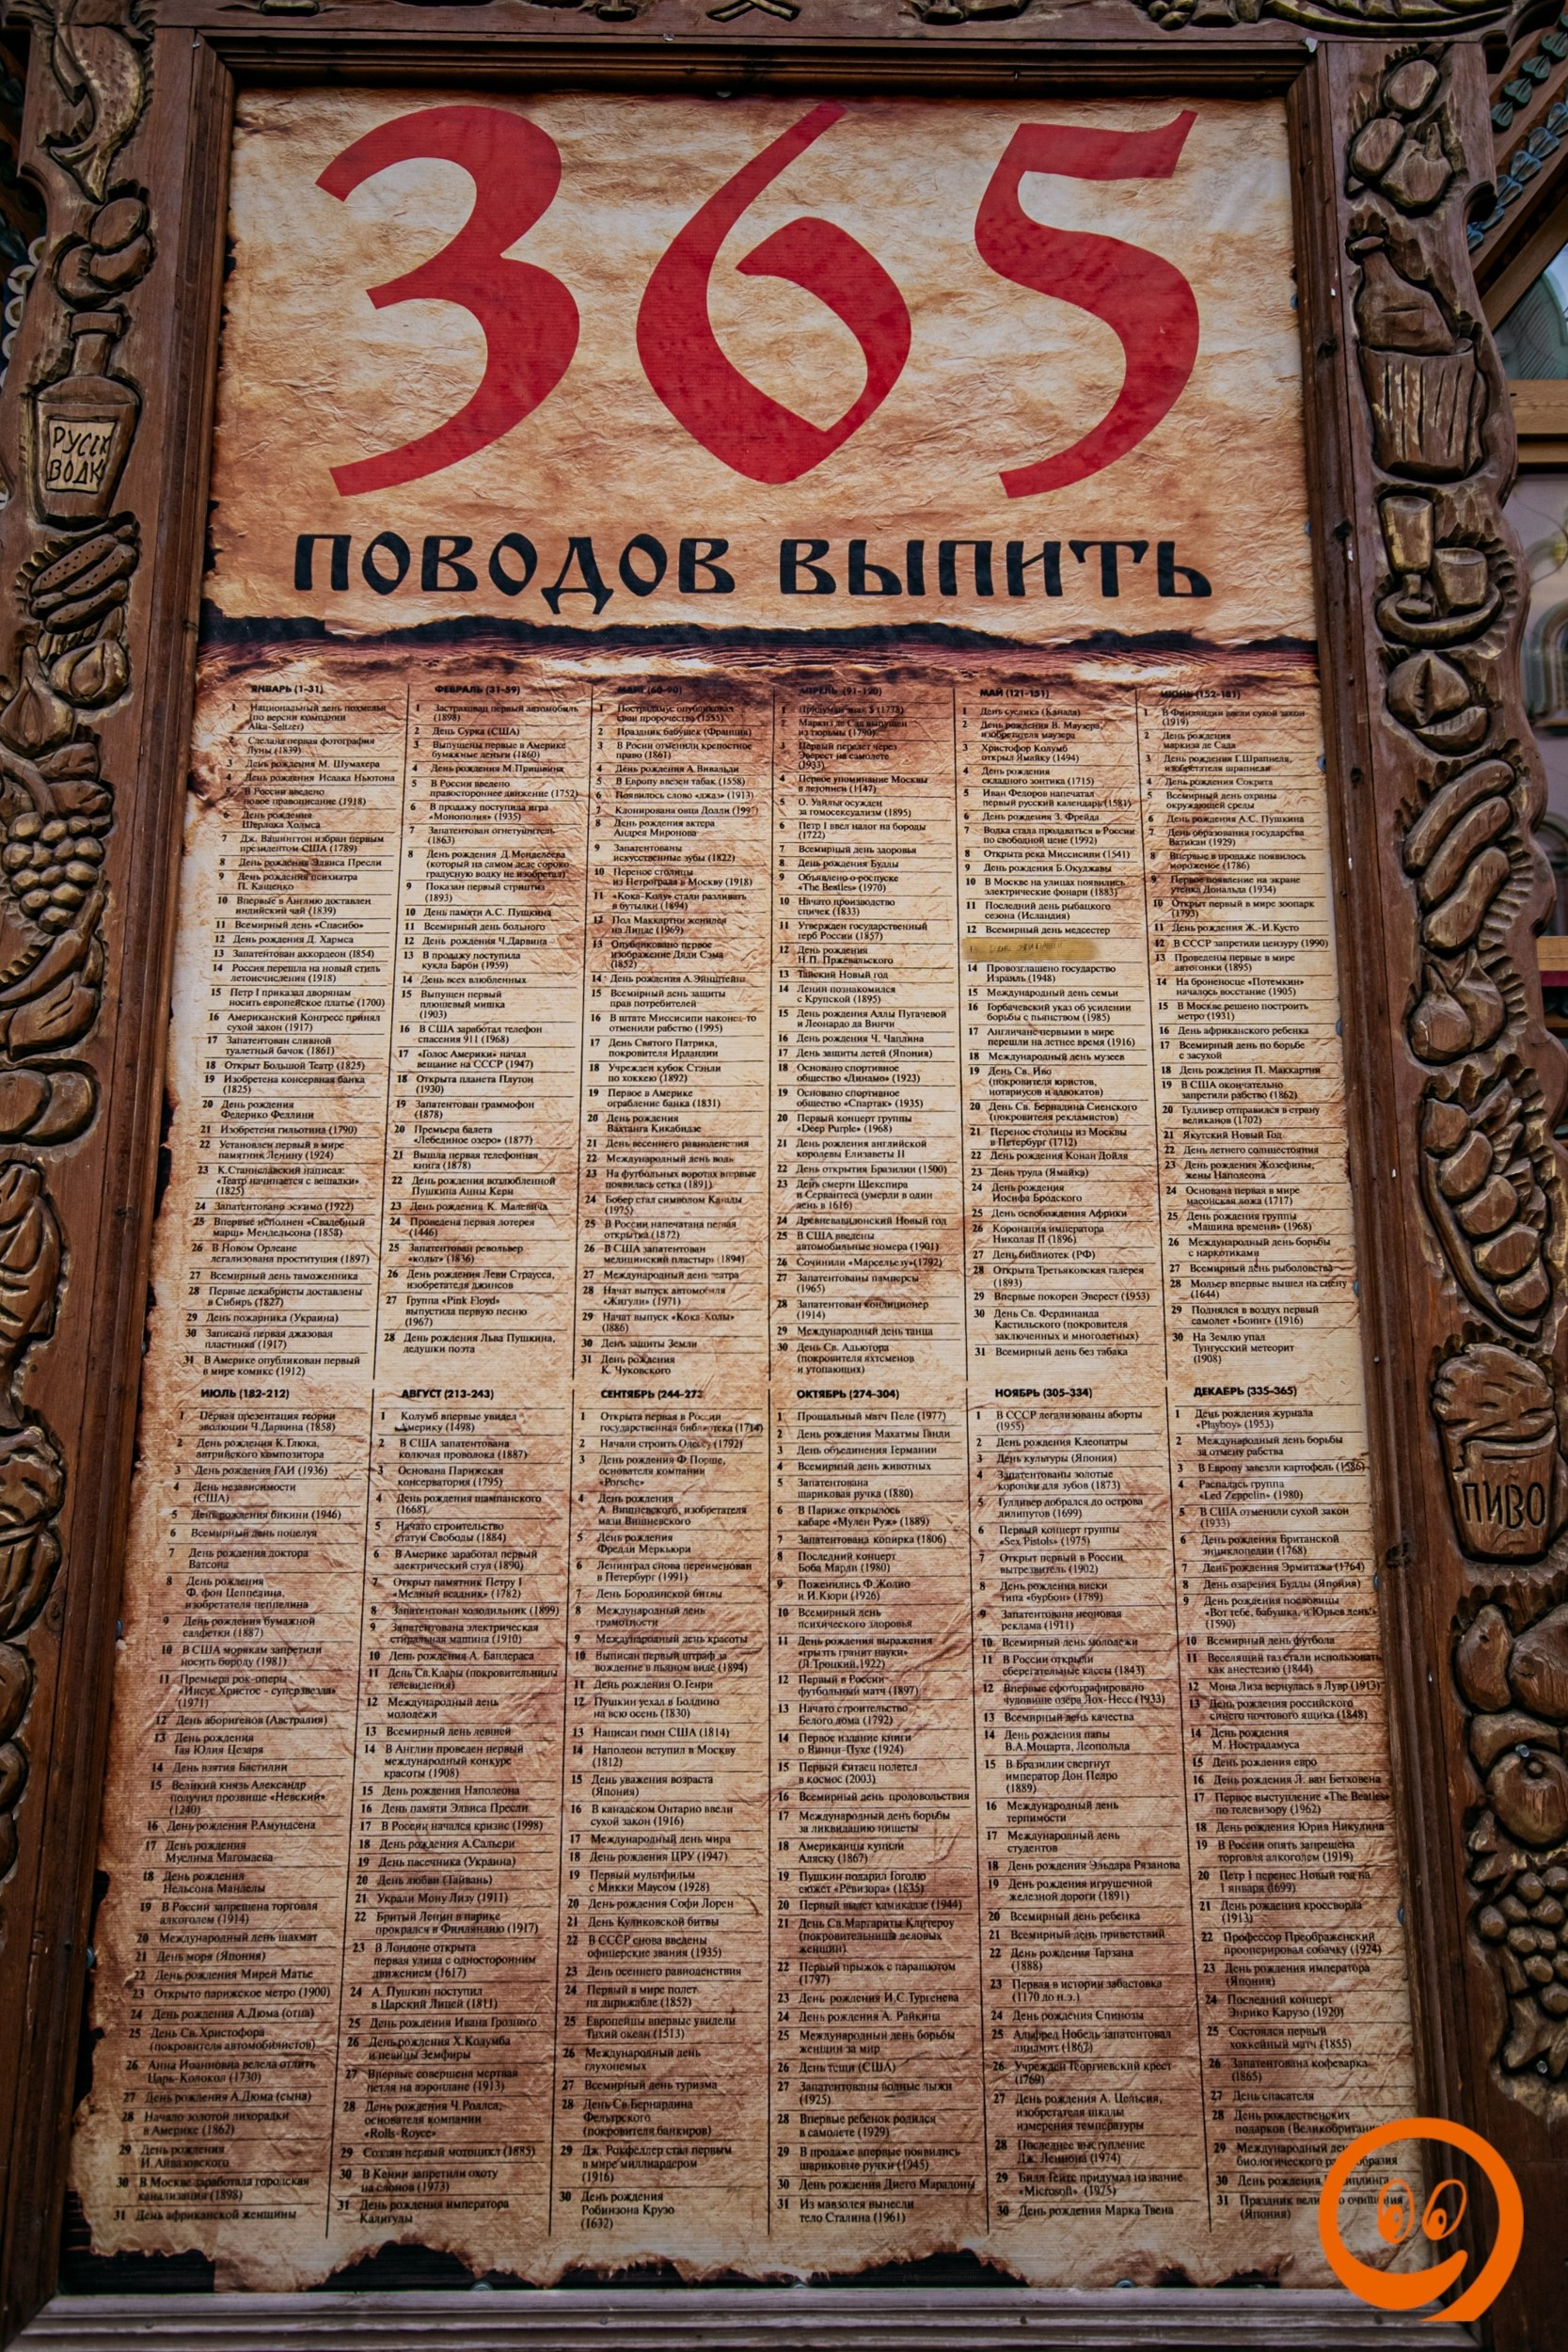 365
ПОВОДОВ ВЫПИТЬ
РУССК
ВОДК
ПИВО
ЯНВАРЬ (1-31)
1 Национальный день похмелья
(по версии компании
Alka-Seltzer)
2 Сделана первая фотография
Луны (1839)
3 День рождения М. Шумахера
4 День рождения Исаака Ньютона
5 В России введено
новое правописание (1918)
6 День рождения
Шерлока Холмса
7 Дж. Вашингтон избран первым
президентом США (1789)
8 День рождения Элвиса Пресли
9 День рождения психиатра
П. Кащенко
10 Впервые в Англию доставлен
индийский чай (1839)
11 Всемирный день «Спасибо»
12 День рождения Д. Хармса
13 Запатентован аккордеон (1854)
14 Россия перешла на новый стиль
летоисчисления (1918)
15 Петр I приказал дворянам
носить европейское платье (1700)
16 Американский Конгресс принял
сухой закон (1917)
17 Запатентован сливной
туалетный бачок (1861)
18 Открыт Большой Театр (1825)
19 Изобретена консервная банка
(1825)
20 День рождения
Федерико Феллини
21 Изобретена гильотина (1790)
22 Установлен первый в мире
памятник Ленину (1924)
23 К.Станиславский написал:
«Театр начинается с вешалки»
(1825)
24 Запатентовано эскимо (1922)
25 Впервые исполнен «Свадебный
марш» Мендельсона (1858)
26 В Новом Орлеане
легализована проституция (1897)
27 Всемирный день таможенника
28 Первые декабристы доставлены
в Сибирь (1827)
29 День пожарника (Украина)
30 Записана первая джазовая
пластинка (1917)
31 В Америке опубликован первый
в мире комикс (1912)
ФЕВРАЛЬ (31-59)
1 Застрахован первый автомобиль
(1898)
2 День Сурка (США)
3 Выпущены первые в Америке
бумажные деньги (1860)
4 День рождения М.Пришвина
5 В России введено
правостороннее движение (1752)
6 В продажу поступила игра
«Монополия» (1935)
7 Запатентован огнетушитель
(1863)
8 День рождения Д.Менделеева
(который на самом деле сороко-
градусную водку не изобретал)
9 Показан первый стриптиз
(1893)
10 День памяти А.С. Пушкина
11 Всемирный день больного
12 День рождения Ч.Дарвина
13 В продажу поступила
кукла Барби (1959)
14 День всех влюбленных
15 Выпущен первый
плюшевый мишка
(1903)
16 В США заработал телефон
спасения 911 (1968)
17 «Голос Америки» начал
вещание на СССР (1947)
18 Открыта планета Плутон
(1930)
19 Запатентован граммофон
(1878)
20 Премьера балета
«Лебединое озеро» (1877)
21 Вышла первая телефонная
книга (1878)
22 День рождения возлюбленной
Пушкина Анны Керн
23 День рождения К. Малевича
24 Проведена первая лотерея
(1446)
25 Запатентован револьвер
«кольт» (1836)
26 День рождения Леви Страусса,
изобретателя джинсов
27 Группа «Pink Floyd»
выпустила первую песню
(1967)
28 День рождения Льва Пушкина,
дедушки поэта
МАРТ (60-90)
1 Нострадамус опубликовал
свои пророчества (1555)
2 Праздник бабушек (Франция)
3 В Росии отменили крепостное
право (1861)
4 День рождения А.Вивальди
5 В Европу ввезен табак (1558)
6 Появилось слово «джаз» (1913)
7 Клонирована овца Долли (1997)
8 День рождения актера
Андрея Миронова
9 Запатентованы
искусственные зубы (1822)
10 Перенос столицы
из Петрограда в Москву (1918)
11 «Кока-Колу» стали разливать
в бутылки (1894)
12 Пол Маккартни женился
на Линде (1969)
13 Опубликовано первое
изображение Дяди Сэма
(1852)
14 День рождения А.Эйнштейна
15 Всемирный день защиты
прав потребителей
16 В штате Миссисипи наконец-то
отменили рабство (1995)
17 День Святого Патрика,
покровителя Ирландии
18 Учрежден кубок Стэнли
по хоккею (1892)
19 Первое в Америке
ограбление банка (1831)
20 День рождения
Вахтанга Кикабидзе
21 День весеннего равноденствия
22 Международный день воды
23 На футбольных воротах впервые
появилась сетка (1891)
24 Бобер стал символом Канады
(1975)
25 В России напечатана первая
открытка (1872)
26 В США запатентован
медицинский пластырь (1894)
27 Международный день театра
28 Начат выпуск автомобиля
«Жигули» (1971)
29 Начат выпуск «Кока-Колы»
(1886)
30 День защиты Земли
31 День рождения
К. Чуковского
АПРЕЛЬ (91-120)
1 Придуман знак $ (1778)
2 Маркиз де Сад выпущен
из тюрьмы (1790)
3 Первый перелет через
Эверест на самолете
(1933)
4 Первое упоминание Москвы
в летописи (1147)
5 О. Уайльд осужден
за гомосексуализм (1895)
6 Петр I ввел налог на бороды
(1722)
7 Всемирный день здоровья
8 День рождения Будды
9 Объявлено о роспуске
«The Beatles» (1970)
10 Начато производство
спичек (1833)
11 Утвержден государственный
герб России (1857)
12 День рождения
Н.П. Пржевальского
13 Тайский Новый год
14 Ленин познакомился
с Крупской (1895)
15 День рождения Аллы Пугачевой
и Леонардо да Винчи
16 День рождения Ч. Чаплина
17 День защиты детей (Япония)
18 Основано спортивное
общество «Динамо» (1923)
19 Основано спортивное
общество «Спартак» (1935)
20 Первый концерт группы
«Deep Purple» (1968)
21 День рождения английской
королевы Елизаветы II
22 День открытия Бразилии (1500)
23 День смерти Шекспира
и Сервантеса (умерли в один
день в 1616)
24 Древневавилонский Новый год
25 В США введены
автомобильные номера (1901)
26 Сочинили «Марсельезу»(1792)
27 Запатентованы памперсы
(1965)
28 Запатентован кондиционер
(1914)
29 Международный день танца
30 День Св. Адьютора
(покровителя яхтсменов
и утопающих)
МАЙ (121-151)
1 День суслика (Канада)
2 День рождения В. Маузера,
изобретателя маузера
3 Христофор Колумб
открыл Ямайку (1494)
4 День рождения
складного зонтика (1715)
5 Иван Федоров напечатал
первый русский календарь(1581)
6 День рождения З. Фрейда
7 Водка стала продаваться в России
по свободной цене (1992)
8 Открыта река Миссисипи (1541)
9 День рождения Б.Окуджавы
10 В Москве на улицах появились
электрические фонари (1883)
11 Последний день рыбацкого
сезона (Исландия)
12 Всемирный день медсестер
14 Провозглашено государство
Израиль (1948)
15 Международный день семьи
16 Горбачевский указ об усилении
борьбы с пьянством (1985)
17 Англичане первыми в мире
перешли на летнее время (1916)
18 Международный день музеев
19 День Св. Иво
(покровителя юристов,
нотариусов и адвокатов)
20 День Св. Бернадина Сиенского
(покровителя рекламистов)
21 Перенос столицы из Москвы
в Петербург (1712)
22 День рождения Конан Дойля
23 День труда (Ямайка)
24 День рождения
Иосифа Бродского
25 День освобождения Африки
26 Коронация императора
Николая II (1896)
27 День библиотек (РФ)
28 Открыта Третьяковская галерея
(1893)
29 Впервые покорен Эверест (1953)
30 День Св. Фердинанда
Кастильского (покровителя
заключенных и многодетных)
31 Всемирный день без табака
ИЮНЬ (152-181)
1 В Финляндии ввели сухой закон
(1919)
2 День рождения
маркиза де Сада
3 День рождения Г.Шрапнеля,
изобретателя шрапнели
4 День рождения Сократа
5 Всемирный день охраны
окружающей среды
6 День рождения А.С. Пушкина
7 День образования государства
Ватикан (1929)
8 Впервые в продаже появилось
мороженое (1786)
9 Первое появление на экране
утенка Дональда (1934)
10 Открыт первый в мире зоопарк
(1793)
11 День рождения Ж.-И.Кусто
12 В СССР запретили цензуру (1990)
13 Проведены первые в мире
автогонки (1895)
14 На броненосце «Потемкин»
началось восстание (1905)
15 В Москве решено построить
метро (1931)
16 День африканского ребенка
17 Всемирный день по борьбе
с засухой
18 День рождения П. Маккартни
19 В США окончательно
запретили рабство (1862)
20 Гулливер отправился в страну
великанов (1702)
21 Якутский Новый Год
22 День летнего солнцестояния
23 День рождения Жозефины,
жены Наполеона
24 Основана первая в мире
масонская ложа (1717)
25 День рождения группы
«Машина времени» (1968)
26 Международный день борьбы
с наркотиками
27 Всемирный день рыболовства
28 Мольер впервые вышел на сцену
(1644)
29 Поднялся в воздух первый
самолет «Боинг» (1916)
30 На Землю упал
Тунгусский метеорит
(1908)
ИЮЛЬ (182-212)
1 Первая презентация теории
эволюции Ч.Дарвина (1858)
2 День рождения К.Глюка,
австрийского композитора
3 День рождения ГАИ (1936)
4 День независимости
(США)
5 День рождения бикини (1946)
6 Всемирный день поцелуя
7 День рождения доктора
Ватсона
8 День рождения
Ф. фон Цеппелина,
изобретателя цеппелина
9 День рождения бумажной
салфетки (1887)
10 В США морякам запретили
носить бороду (1981)
11 Премьера рок-оперы
«Иисус Христос - суперзвезда»
(1971)
12 День аборигенов (Австралия)
13 День рождения
Гая Юлия Цезаря
14 День взятия Бастилии
15 Великий князь Александр
получил прозвище «Невский»
(1240)
16 День рождения Р.Амундсена
17 День рождения
Муслима Магомаева
18 День рождения
Нельсона Манделы
19 В России запрещена торговля
алкоголем (1914)
20 Международный день шахмат
21 День моря (Япония)
22 День рождения Мирей Матье
23 Открыто парижское метро (1900)
24 День рождения А.Дюма (отца)
25 День Св. Христофора
(покровителя автомобилистов)
26 Анна Иоанновна велела отлить
Царь-Колокол (1730)
27 День рождения А.Дюма (сына)
28 Начало золотой лихорадки
в Америке (1862)
29 День рождения
И.Айвазовского
30 В Москве заработала городская
канализация (1898)
31 День африканской женщины
АВГУСТ (213-243)
1 Колумб впервые увидел
Америку (1498)
2 В США запатентована
колючая проволока (1887)
3 Основана Парижская
консерватория (1795)
4 День рождения шампанского
(1668)
5 Начато строительство
статуи Свободы (1884)
6 В Америке заработал первый
электрический стул (1890)
7 Открыт памятник Петру I
«Медный всадник» (1782)
8 Запатентован холодильник (1899)
9 Запатентована электрическая
стиральная машина (1910)
10 День рождения А. Бандераса
11 День Св.Клары (покровительницы
телевидения)
12 Международный день
молодежи
13 Всемирный день левшей
14 В Англии проведен первый
международный конкурс
красоты (1908)
15 День рождения Наполеона
16 День памяти Элвиса Пресли
17 В России начался кризис (1998)
18 День рождения А.Сальери
19 День пасечника (Украина)
20 День любви (Тайвань)
21 Украли Мону Лизу (1911)
22 Бритый Ленин в парике
прокрался в Финляндию (1917)
23 В Лондоне открыта
первая улица с односторонним
движением (1617)
24 А. Пушкин поступил
в Царский Лицей (1811)
25 День рождения Ивана Грозного
26 День рождения Х.Колумба
и певицы Земфиры
27 Впервые совершена мертвая
петля на аэроплане (1913)
28 День рождения Ч.Роллса,
основателя компании
«Rolls-Royce»
29 Создан первый мотоцикл (1885)
30 В Кении запретили охоту
на слонов (1973)
31 День рождения императора
Калигулы
СЕНТЯБРЬ (244-273
1 Открыта первая в России
государственная библиотека (1714)
2 Начали строить Одессу (1792)
3 День рождения Ф.Порше,
основателя компании
«Porsche»
4 День рождения
А. Вишневского, изобретателя
мази Вишневского
5 День рождения
Фредди Меркьюри
6 Ленинград снова переименован
в Петербург (1991)
7 День Бородинской битвы
8 Международный день
грамотности
9 Международный день красоты
10 Выписан первый штраф за
вождение в пьяном виде (1894)
11 День рождения О.Генри
12 Пушкин уехал в Болдино
на всю осень (1830)
13 Написан гимн США (1814)
14 Наполеон вступил в Москву
(1812)
15 День уважения возраста
(Япония)
16 В канадском Онтарио ввели
сухой закон (1916)
17 Международный день мира
18 День рождения ЦРУ (1947)
19 Первый мультфильм
с Микки Маусом (1928)
20 День рождения Софи Лорен
21 День Куликовской битвы
22 В СССР снова введены
офицерские звания (1935)
23 День осеннего равноденствия
24 Первый в мире полет
на дирижабле (1852)
25 Европейцы впервые увидели
Тихий океан (1513)
26 Международный день
глухонемых
27 Всемирный день туризма
28 День Св Бернардина
Фельтрского
(покровителя банкиров)
29 Дж. Рокфеллер стал первым
в мире миллиардером
(1916)
30 День рождения
Робинзона Крузо
(1632)
ОКТЯБРЬ (274-304)
1 Прощальный матч Пеле (1977)
2 День рождения Махатмы Ганди
3 День объединения Германии
4 Всемирный день животных
5 Запатентована
шариковая ручка (1880)
6 В Париже открылось
кабаре «Мулен Руж» (1889)
7 Запатентована копирка (1806)
8 Последний концерт
Боба Марли (1980)
9 Поженились Ф.Жолио
и И.Кюри (1926)
10 Всемирный день
психического здоровья
11 День рождения выражения
«грызть гранит науки»
(Л.Троцкий,1922)
12 Первый в России
футбольный матч (1897)
13 Начато строительство
Белого дома (1792)
14 Первое издание книги
о Винни-Пухе (1924)
15 Первый китаец полетел
в космос (2003)
16 Всемирный день продовольствия
17 Международный день борьбы
за ликвидацию нищеты
18 Американцы купили
Аляску (1867)
19 Пушкин подарил Гоголю
сюжет «Ревизора» (1835)
20 Первый вылет камикадзе (1944)
21 День Св.Маргариты Клитероу
(покровительницы деловых
женщин)
22 Первый прыжок с парашютом
(1797)
23 День рождения И.С.Тургенева
24 День рождения А. Райкина
25 Международный день борьбы
женщин за мир
26 День тещи (США)
27 Запатентованы водные лыжи
(1925)
28 Впервые ребенок родился
в самолете (1929)
29 В продаже впервые появились
шариковые ручки (1945)
30 День рождения Диего Марадоны
31 Из мавзолея вынесли
тело Сталина (1961)
НОЯБРЬ (305-334)
1 В СССР легализованы аборты
(1955)
2 День рождения Клеопатры
3 День культуры (Япония)
4 Запатентованы золотые
коронки для зубов (1873)
5 Гулливер добрался до острова
лилипутов (1699)
6 Первый концерт группы
«Sex Pistols» (1975)
7 Открыт первый в России
вытрезвитель (1902)
8 День рождения виски
типа «бурбон» (1789)
9 Запатентована неоновая
реклама (1911)
10 Всемирный день молодежи
11 В России открыли
сберегательные кассы (1843)
12 Впервые сфотографировано
чудовище озера Лох-Несс (1933)
13 Всемирный день качества
14 День рождения папы
В.А.Моцарта, Леопольда
15 В Бразилии свергнут
император Дон Педро
(1889)
16 Международный день
терпимости
17 Международный день
студентов
18 День рождения Эльдара Рязанова
19 День рождения игрушечной
железной дороги (1891)
20 Всемирный день ребенка
21 Всемирный день приветствий
22 День рождения Тарзана
(1888)
23 Первая в истории забастовка
(1170 до н.э.)
24 День рождения Спинозы
25 Альфред Нобель запатентовал
динамит (1867)
26 Учрежден Георгиевский крест
(1769)
27 День рождения А. Цельсия,
изобретателя шкалы
измерения температуры
28 Последнее выступление
Дж. Леннона (1974)
29 Билл Гейтс придумал название
«Microsoft» (1975)
30 День рождения Марка Твена
ДЕКАБРЬ (335-365)
1 День рождения журнала
«Playboy» (1953)
2 Международный день борьбы
за отмену рабства
3 В Европу завезли картофель (1586)
4 Распалась группа
«Led Zeppelin» (1980)
5 В США отменили сухой закон
(1933)
6 День рождения Британской
энциклопедии (1768)
7 День рождения Эрмитажа (1764)
8 День озарения Будды (Япония)
9 День рождения пословицы
«Вот тебе, бабушка, и Юрьев день»
(1590)
10 Всемирный день футбола
11 Веселящий газ стали использовать
как анестезию (1844)
12 Мона Лиза вернулась в Лувр (1913)
13 День рождения российского
синего почтового ящика (1848)
14 День рождения
М. Нострадамуса
15 День рождения евро
16 День рождения Л. ван Бетховена
17 Первое выступление «The Beatles»
по телевизору (1962)
18 День рождения Юрия Никулина
19 В России опять запрещена
торговля алкоголем (1919)
20 Петр I перенес Новый год на
1 января (1699)
21 День рождения кроссворда
(1913)
22 Профессор Преображенский
прооперировал собачку (1924)
23 День рождения императора
(Япония)
24 Последний концерт
Энрико Карузо (1920)
25 Состоялся первый
хоккейный матч (1855)
26 Запатентована кофеварка
(1865)
27 День спасателя
28 День рождественских
подарков (Великобритания
29 Международный день
биологического
30 День рождения
31 Праздник
(Япония)